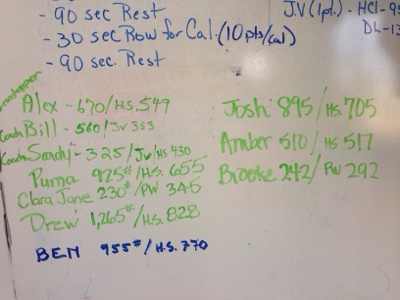 - 90 sec Rest
- 30 sec Row for Cal. (10 pts/cal)
- 90 sec. Rest
J.V (1pt.) - HCl - 95
DL - 13
Alex - 670/HS. 549
Coach Bill - 560/JV 353
Sandy - 325/JV/HS 430
Puma 925#/H.S. 655
Clara Jane 230#/PW 345
Drew 1,265#/H.S. 828
BEN 955#/H.S. 770
Josh 895/HS 705
Amber 510/HS 517
Brooke 242/PW 292